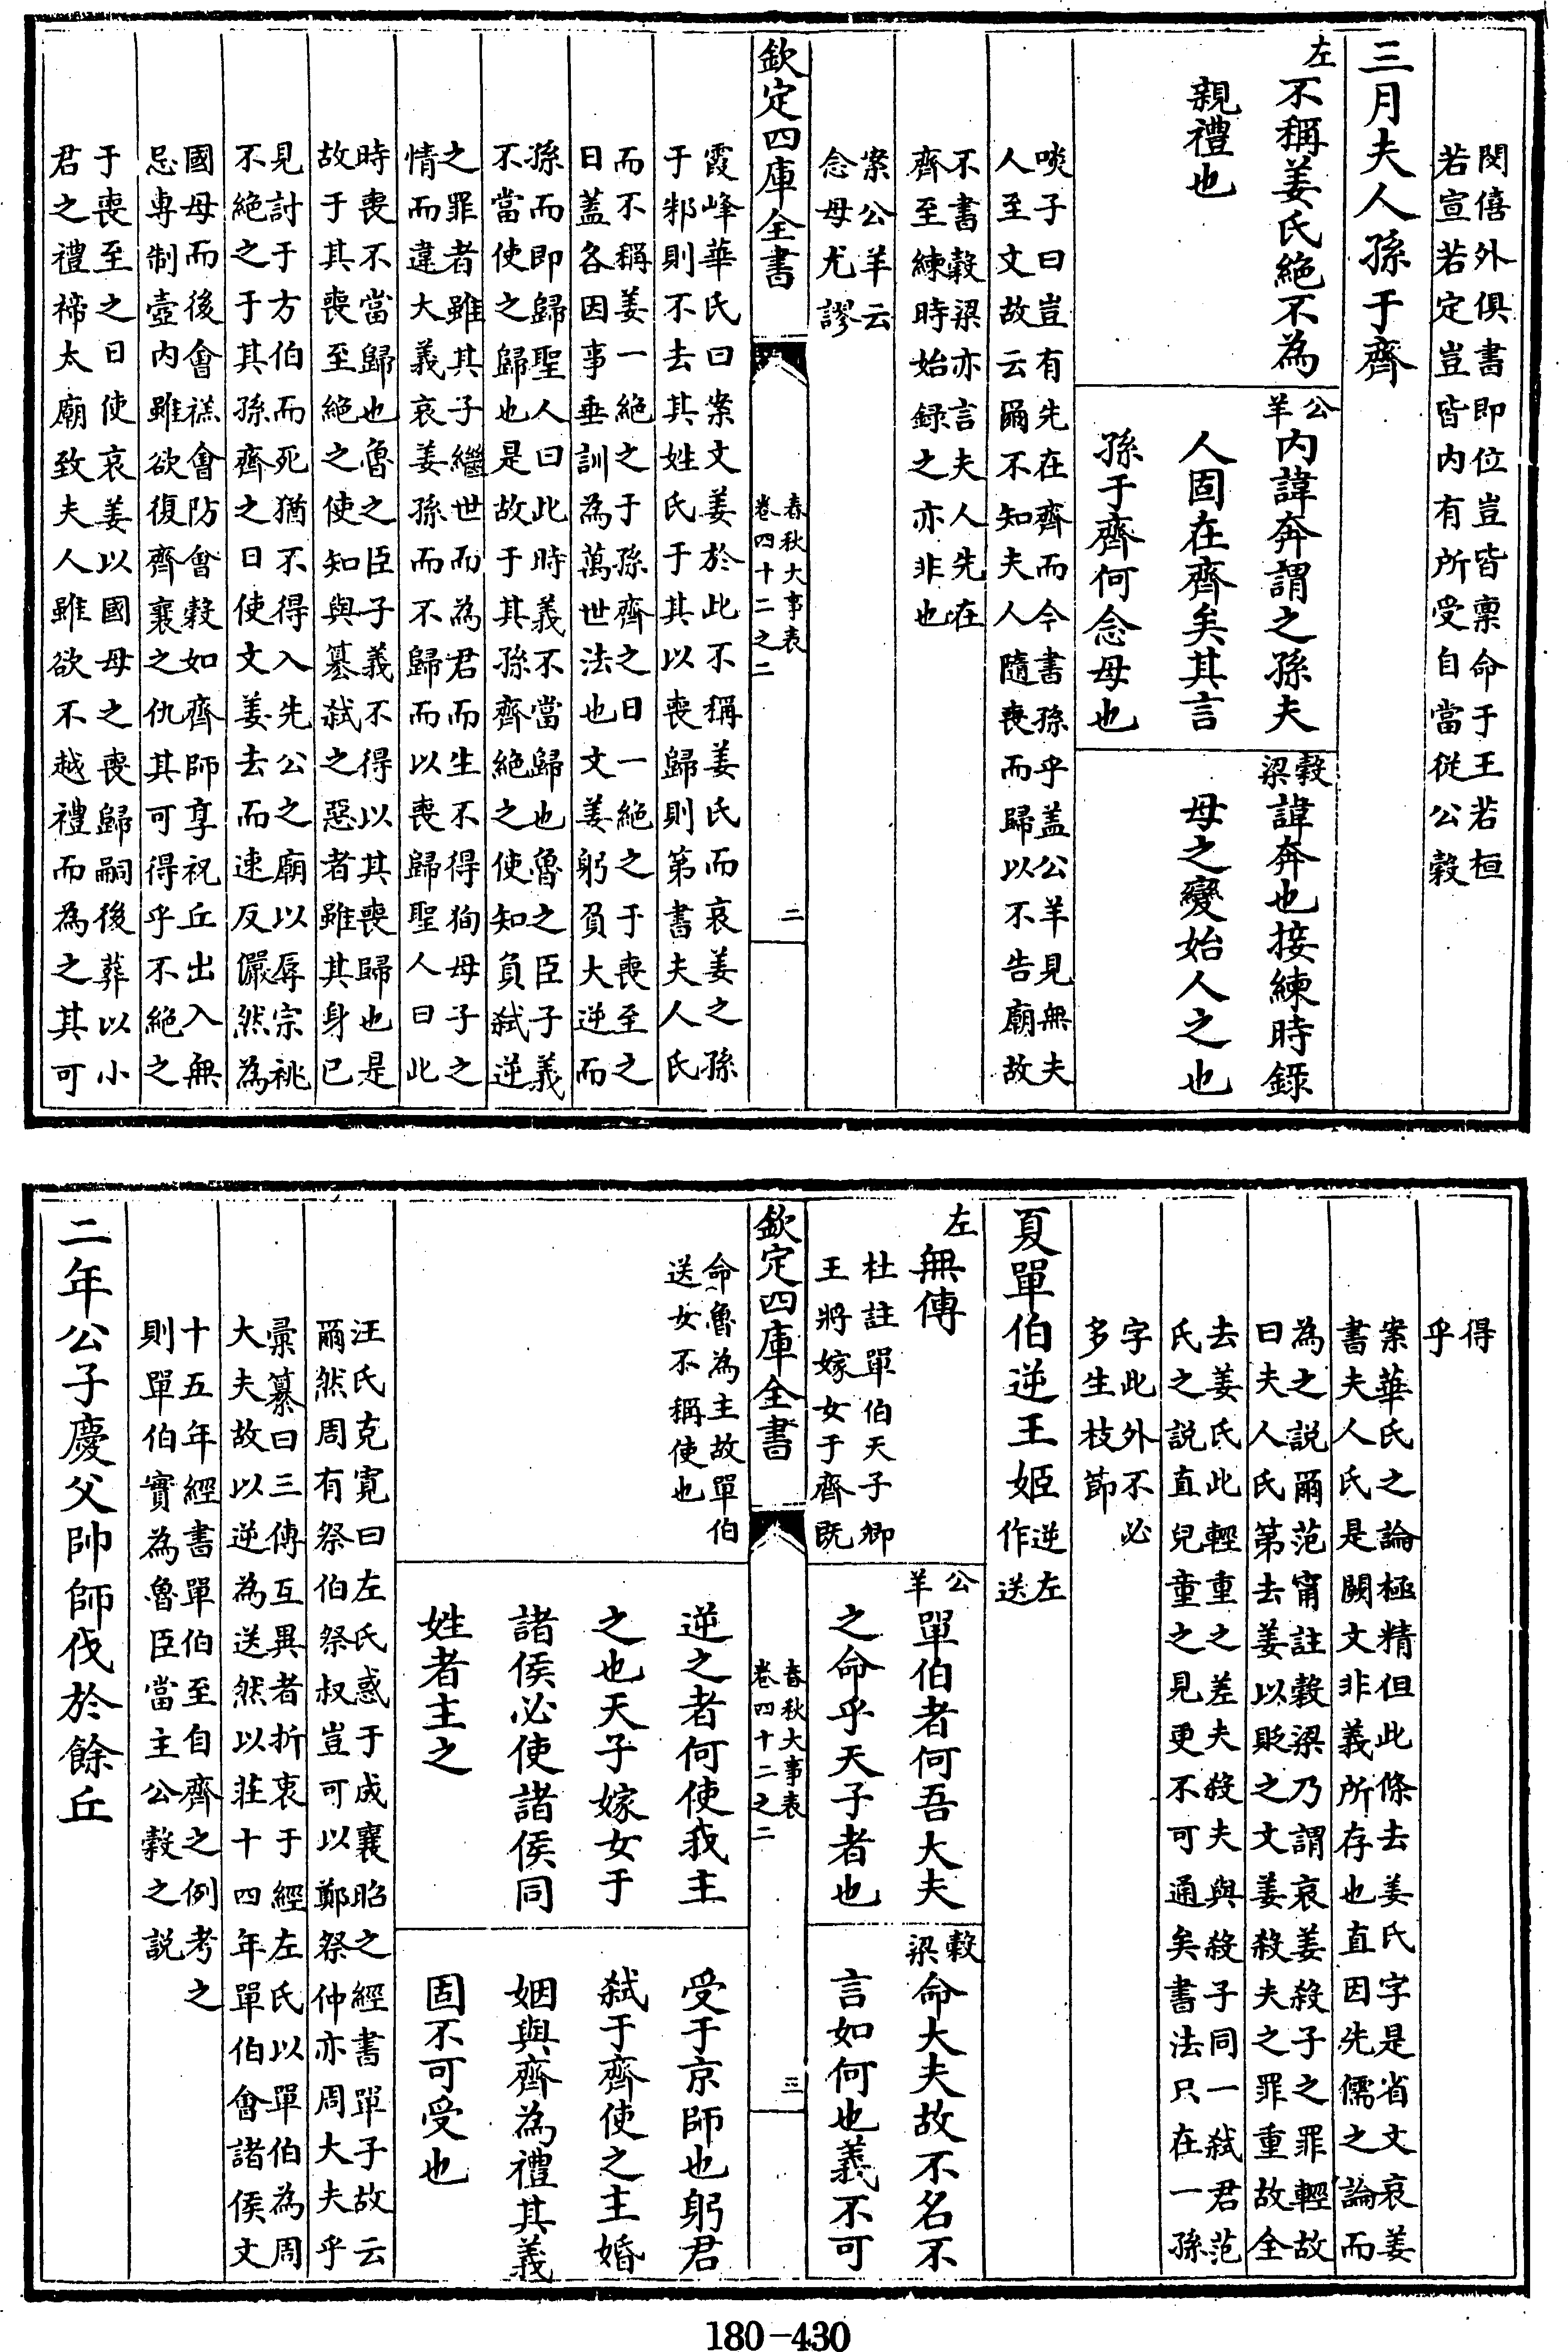 閔僖外俱書即位豈皆禀命于王若桓
若宣若定豈皆内有所受自當從公穀
三月夫人孫于齊
左
不稱姜氏絶不為
親禮也
公羊
内諱奔謂之孫夫
人固在齊矣其言
孫于齊何念母也
穀梁
諱奔也接練時錄
母之變始人之也
啖子曰豈有先在齊而今書孫乎盖公羊見無夫
人至文故云爾不知夫人隨喪而歸以不告廟故
不書穀梁亦言夫人先在
齊至練時始録之亦非也
案公羊云
念母尤謬
欽定四庫全書
春秋大事表
卷四十二之二
二
霞峰華氏曰案文姜於此不稱姜氏而哀姜之孫
于邾則不去其姓氏于其以喪歸則第書夫人氏
而不稱姜一絶之于孫齊之日一絶之于喪至之
日盖各因事垂訓為萬世法也文姜躬負大逆而
孫而即歸聖人曰此時義不當歸也魯之臣子義
不當使之歸也是故于其孫齊絶之使知負弑逆
之罪者雖其子繼世而為君而生不得狥母子之
情而違大義哀姜孫而不歸而以喪歸聖人曰此
時喪不當歸也魯之臣子義不得以其喪歸也是
故于其喪至絶之使知與簒弑之惡者雖其身已
見討于方伯而死猶不得入先公之廟以辱宗祧
不絶之于其孫齊之日使文姜去而速反儼然為
國母而後會禚會防會穀如齊師享祝丘出入無
忌專制壺内雖欲復齊襄之仇其可得乎不絶之
于喪至之日使哀姜以國母之喪歸嗣後葬以小
君之禮禘太廟致夫人雖欲不越禮而為之其可
得
乎
案華氏之論極精但此條去姜氏字是省文哀姜
書夫人氏是闕文非義所存也直因先儒之論而
為之説爾范甯註穀梁乃謂哀姜殺子之罪輕故
曰夫人氏第去姜以貶之文姜殺夫之罪重故全
去姜氏此輕重之差夫殺夫與殺子同一弑君范
氏之説直兒童之見更不可通矣書法只在一孫
字此外不必
多生枝節
夏單伯逆王姬
逆左
作送
左
無傳
杜註單伯天子卿
王將嫁女于齊既
公羊
單伯者何吾大夫
之命乎天子者也
穀梁
命大夫故不名不
言如何也義不可
欽定四庫全書
春秋大事表
卷四十二之二
三
命魯為主故單伯
送女不稱使也
逆之者何使我主
之也天子嫁女于
諸侯必使諸侯同
姓者主之
受于京師也躬君
弑于齊使之主婚
姻與齊為禮其義
固不可受也
汪氏克寛曰左氏惑于成襄昭之經書單子故云
爾然周有祭伯祭叔豈可以鄭祭仲亦周大夫乎
彚纂曰三傳互異者折衷于經左氏以單伯為周
大夫故以逆為送然以莊十四年單伯會諸侯文
十五年經書單伯至自齊之例考之
則單伯實為魯臣當主公穀之説
二年公子慶父帥師伐於餘丘
180-430